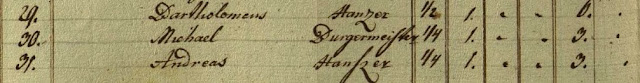 29. Bartholomeus Hanzer 1/2 1. " " 6. .
30. Michael Burgermeister 1/4 1. " " 3. .
31. Andreas Hanszer 1/4 1. " " 3. .